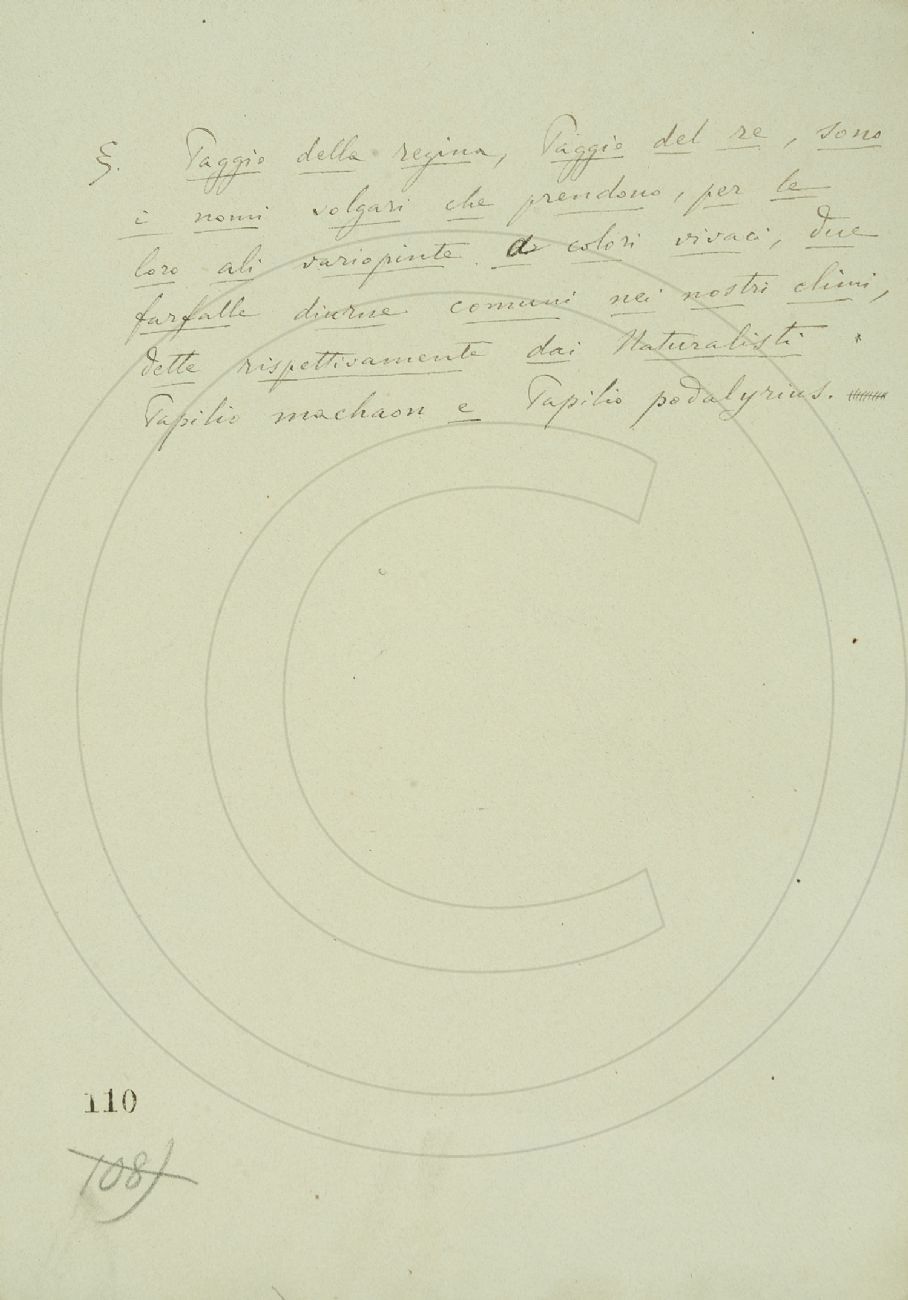 §. Paggio della regina, Paggio del re, sono
i nomi volgari che prendono, per le
loro ali variopinte a colori vivaci, due
farfalle diurne comuni nei nostri climi,
dette rispettivamente dai Naturalisti
Papilio machaon e Papilio podalyrius.
110
108)